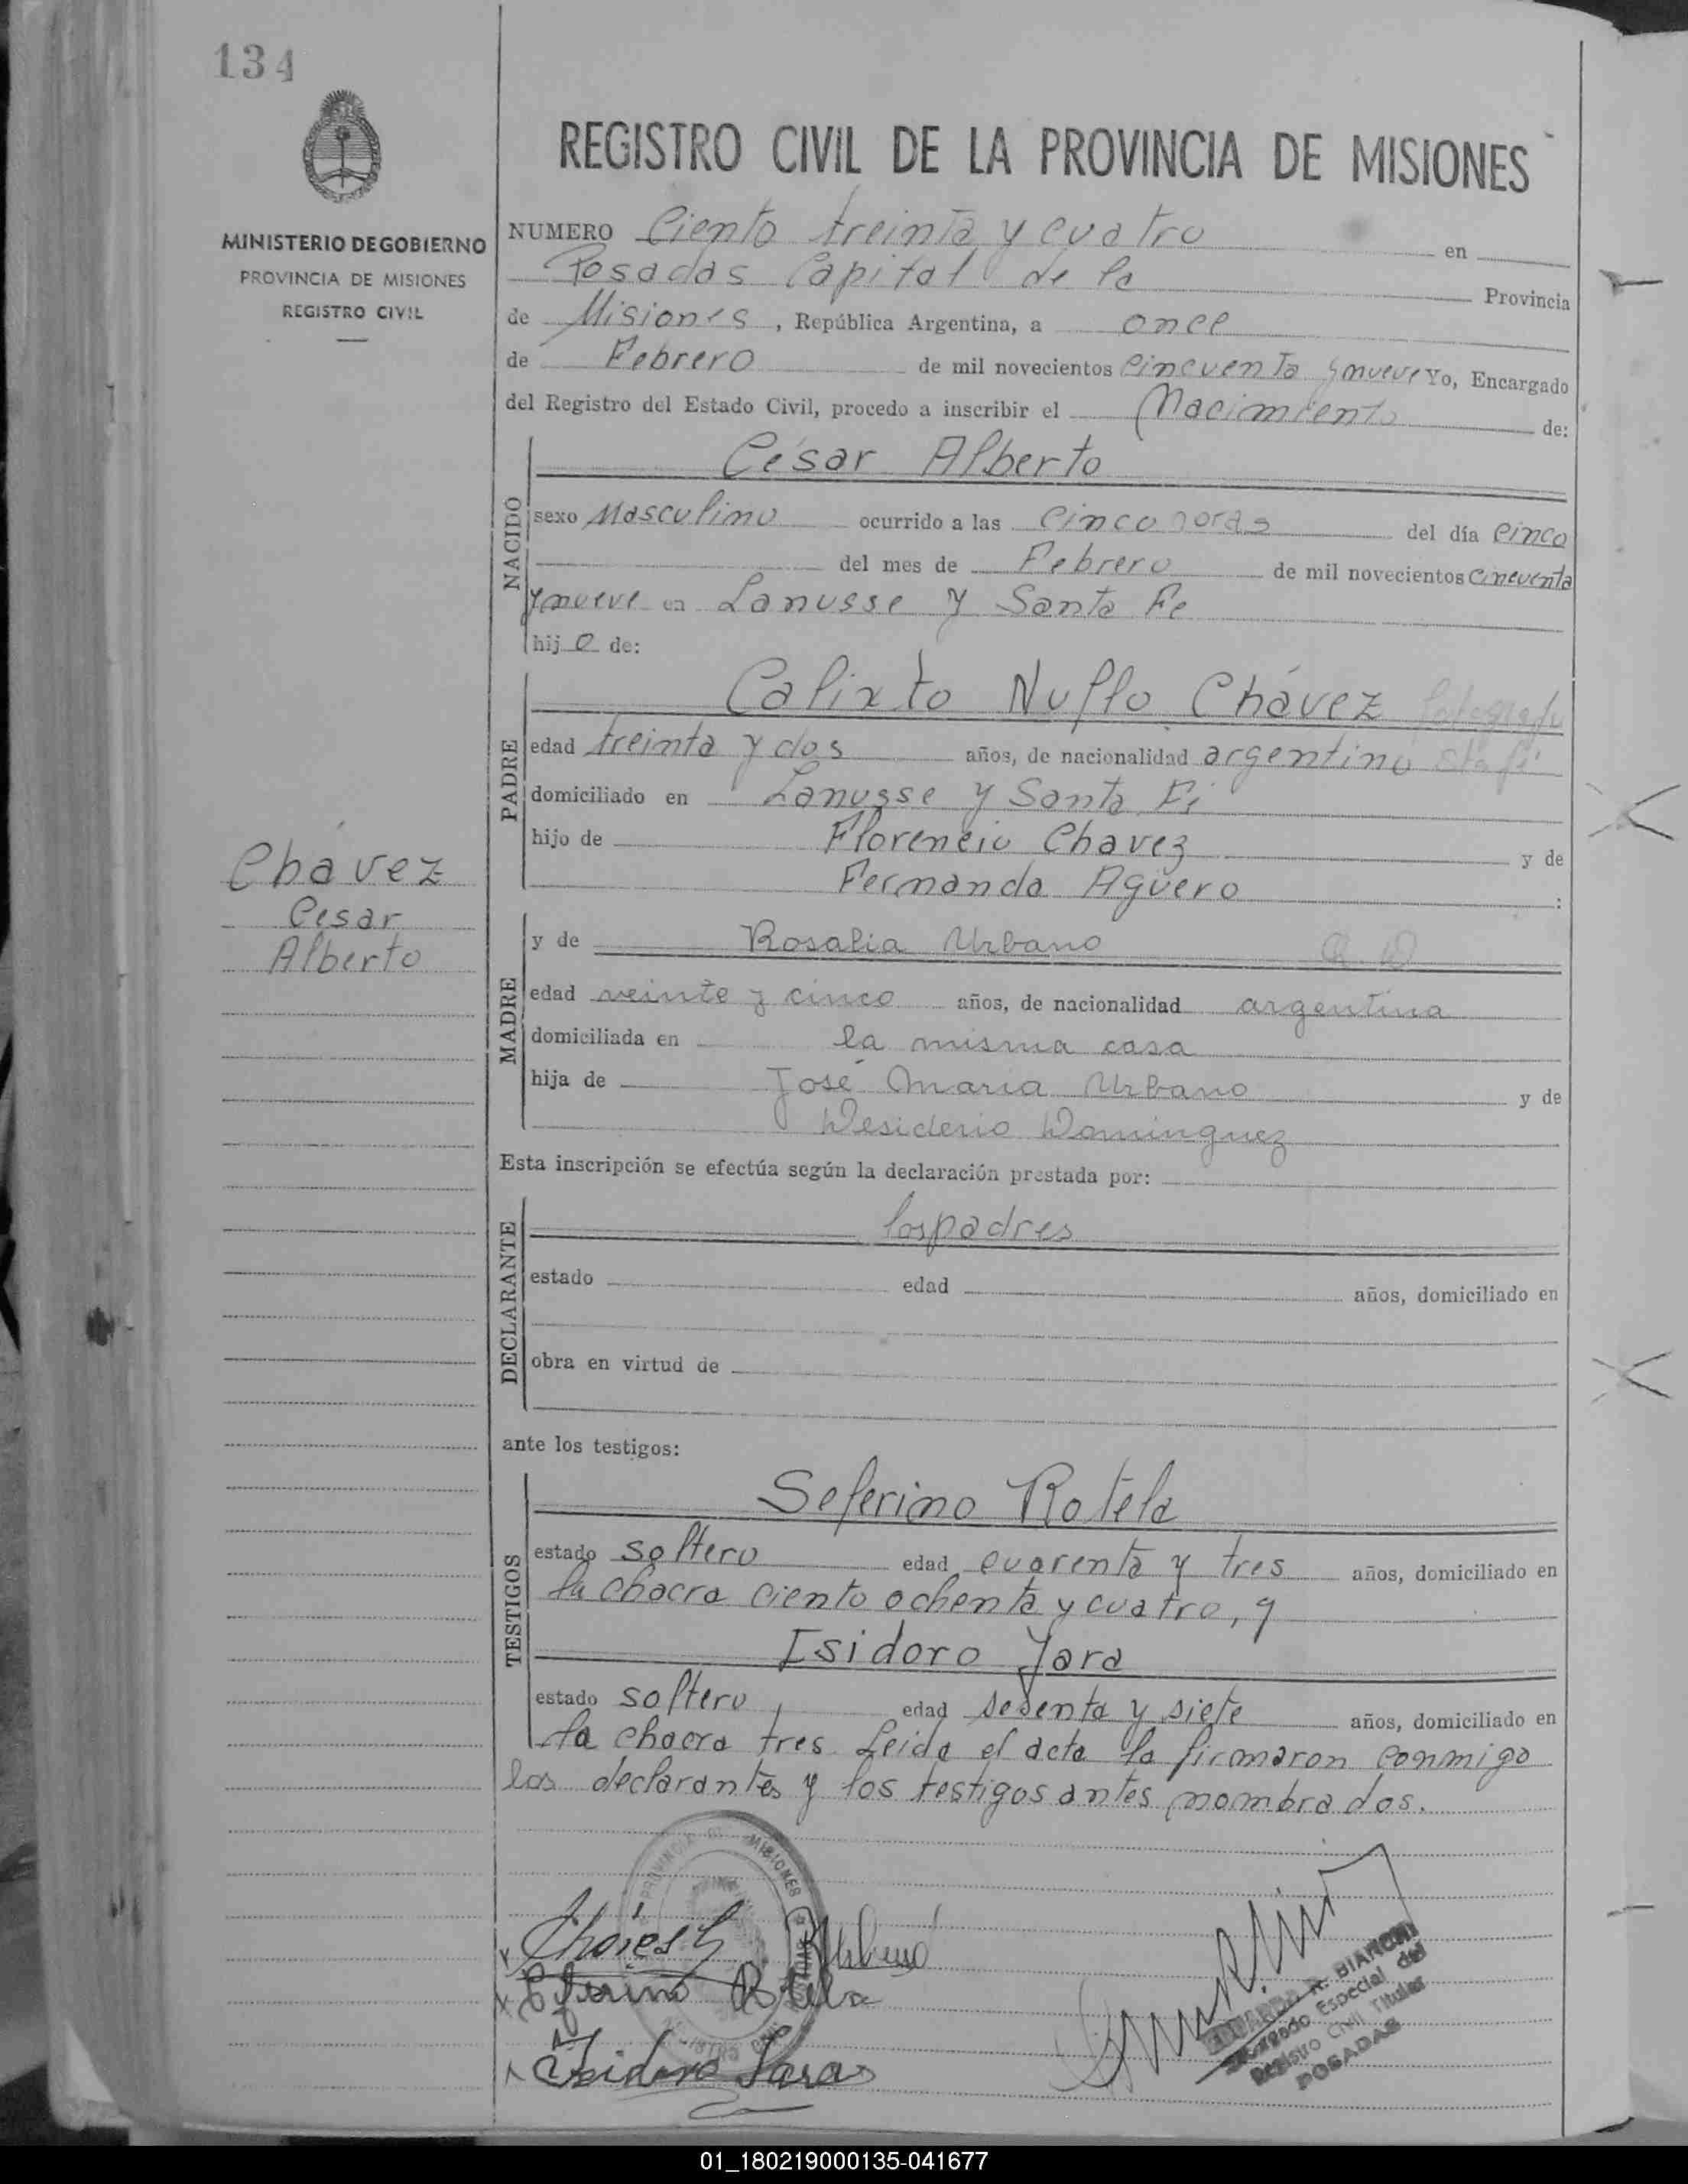 134
REGISTRO CIVIL DE LA PROVINCIA DE MISIONES
MINISTERIO DE GOBIERNO
PROVINCIA DE MISIONES
REGISTRO CIVIL
NUMERO Ciento treinta y cuatro en
Posadas Capital de la Provincia
de Misiones, República Argentina, a once
de Febrero de mil novecientos cincuenta y nueve Yo, Encargado
del Registro del Estado Civil, procedo a inscribir el Nacimiento de:
NACIDO
César Alberto
sexo Masculino ocurrido a las cinco horas del día cinco
del mes de Febrero de mil novecientos cincuenta
y nueve en Lanusse y Santa Fe
hijo de:
PADRE
Calixto Nuflo Chávez
edad treinta y dos años, de nacionalidad argentino
domiciliado en Lanusse y Santa Fé
hijo de Florencio Chavez y de
Fernanda Agüero :
Chávez
Cesar
Alberto
MADRE
y de Rosalia Urbano
edad veinte y cinco años, de nacionalidad argentina
domiciliada en la misma casa
hija de José Maria Urbano y de
Desiderio Dominguez
Esta inscripción se efectúa según la declaración prestada por:
DECLARANTE
los padres
estado edad años, domiciliado en
obra en virtud de
ante los testigos:
TESTIGOS
Seferino Rotela
estado soltero edad cuarenta y tres años, domiciliado en
la chacra ciento ochenta y cuatro, y
Isidoro Jara
estado soltero, edad sesenta y siete años, domiciliado en
la chacra tres. Leida el acta la firmaron conmigo
los declarantes y los testigos antes nombrados.
PROVINCIA DE MISIONES
Urbano
Seferino Rotela
Isidoro Jaras
EDUARDO R. BIANCHI
Encargado Especial del
Registro Civil Titular
POSADAS
01_180219000135-041677